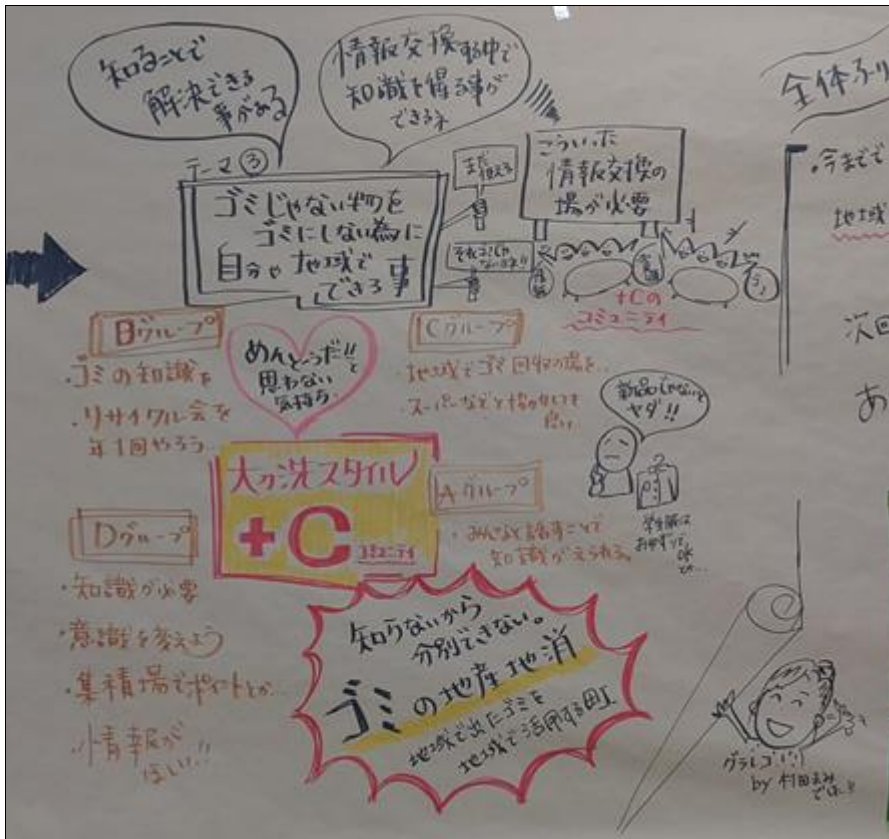 知ることで
解決できる
事がある
情報交換する中で
知識を得る事が
できるネ
全体ふり
テーマ③
ゴミじゃない物を
ゴミにしない為に
自分や地域で
できる事
まだ使える
それゴミじゃ
ないよネ!!
こういった
情報交換の
場が必要
+Cの
コミュニティ
・今まで
地域
次回
あ
Bグループ
・ゴミの知識を
・リサイクル会を
年1回やろう
めんどーうだ!!と
思わない
気持ち
Cグループ
・地域でゴミ回収の場を..
・スーパーなどと協力しても
良い
新品じゃないと
ヤダ!!
大刀洗スタイル
+C
コミュニティ
Aグループ
・みんなと話すことで
知識がえられる。
学生服は
Dグループ
・知識が必要
・意識を変えよう
・集積場でポイントとか..
・情報が
ほしい!!
知らないから
分別できない。
ゴミの地産地消
地域で出たゴミを
地域で活用する
グラレコ
by 村田えみ
でした!!